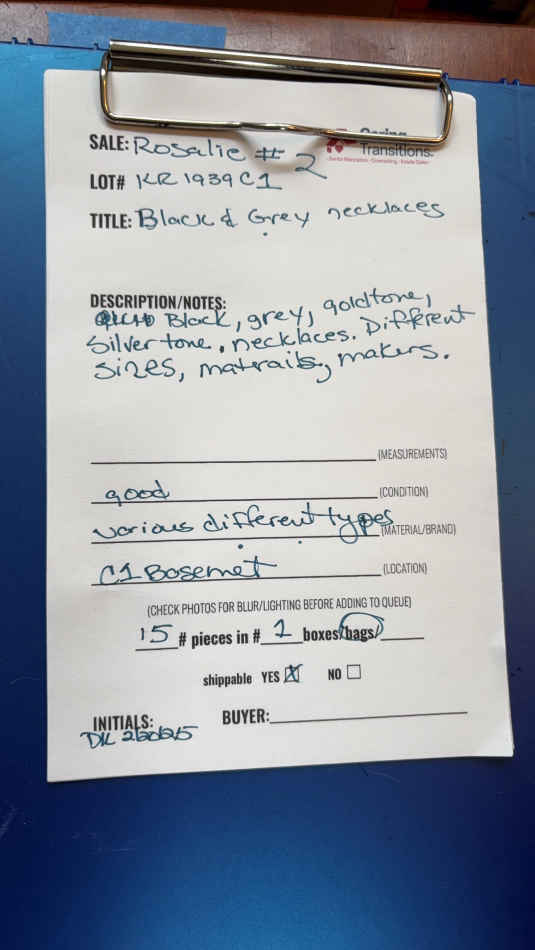 SALE: Rosalie # 2
Transitions.
Senior Relocation • Downsizing • Estate Sales
LOT# KR1939C1
TITLE: Black & Grey necklaces
DESCRIPTION/NOTES:
Black, grey, goldtone,
Silver tone, necklaces. Different
sizes, matrails, makers.
(MEASUREMENTS)
good (CONDITION)
various different types (MATERIAL/BRAND)
C1 Basemet (LOCATION)
(CHECK PHOTOS FOR BLUR/LIGHTING BEFORE ADDING TO QUEUE)
15 # pieces in # 1 boxes/bags/
shippable YES X NO
INITIALS: BUYER:
DK